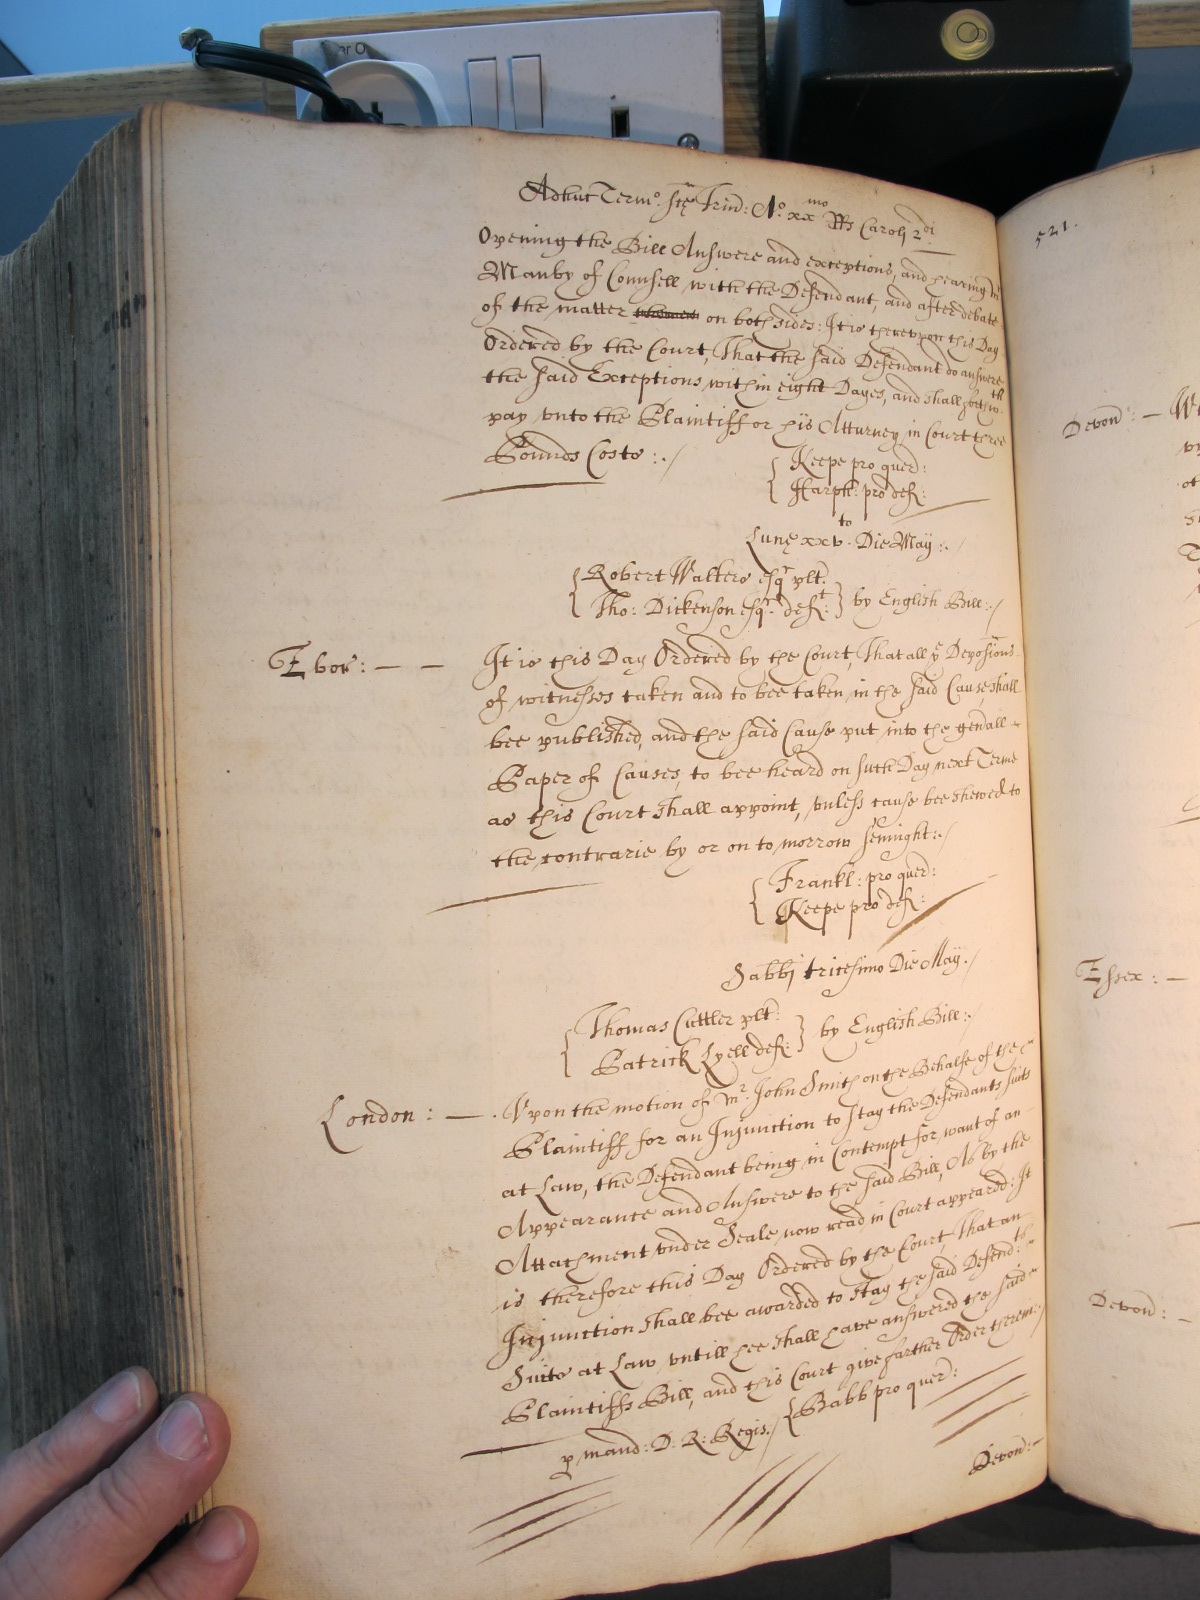 Adhuc Termo. Ste Trin: Ao. xxmo Rs Caroli 2di
Opening the Bill Answere and exceptions, and hearing Mr
Manby of Counsell with the Defendant, and after debate
of the matter on both sides: It is thereupon this Day
Ordered by the Court, That the said Defendant do answere
the said Exceptions within eight Dayes, and shall forthwth
pay vnto the Plaintiff or his Atturney in Court three
Pounds Costs :./
Keepe pro quer:
Harph: pro def:
Lune xxvto. Die May:./
Robert Walters esqr plt:
Tho: Dickenson esqr. deft: by English Bill:./
Ebor: — — It is this Day Ordered by the Court, That all ye Deposicons
of witnesses taken and to bee taken, in the said Cause, shall
bee published, and the said Cause put into the genall
Paper of Causes, to bee heard on such Day next Terme
as this Court shall appoint, vnless cause bee shewed to
the contrarie by or on to morrow sennight:./
Frankl: pro quer:
Keepe pro def:
Sabbi tricesimo Die May./
Thomas Cuttler plt:
Patrick Lyell def: by English Bill:./
London: — Vpon the motion of mr. John Smith on the Behalfe of the
Plaintiff for an Injunction to stay the Defendants suits
at Law, the Defendant being in Contempt for want of an
Appearance and Answere to the said Bill, As by the
Attachment vnder Seale now read in Court appeared: It
is therefore this Day Ordered by the Court, That an
Injunction shall bee awarded to stay the said Defendts
Suits at Law vntill hee shall have answered the said
Plaintiffs Bill, and this Court give farther Order therein:./
p mand: D: R: Regis./ Babb pro quer:
Devon: —
521.
Devon: —
Essex: —
Devon: —